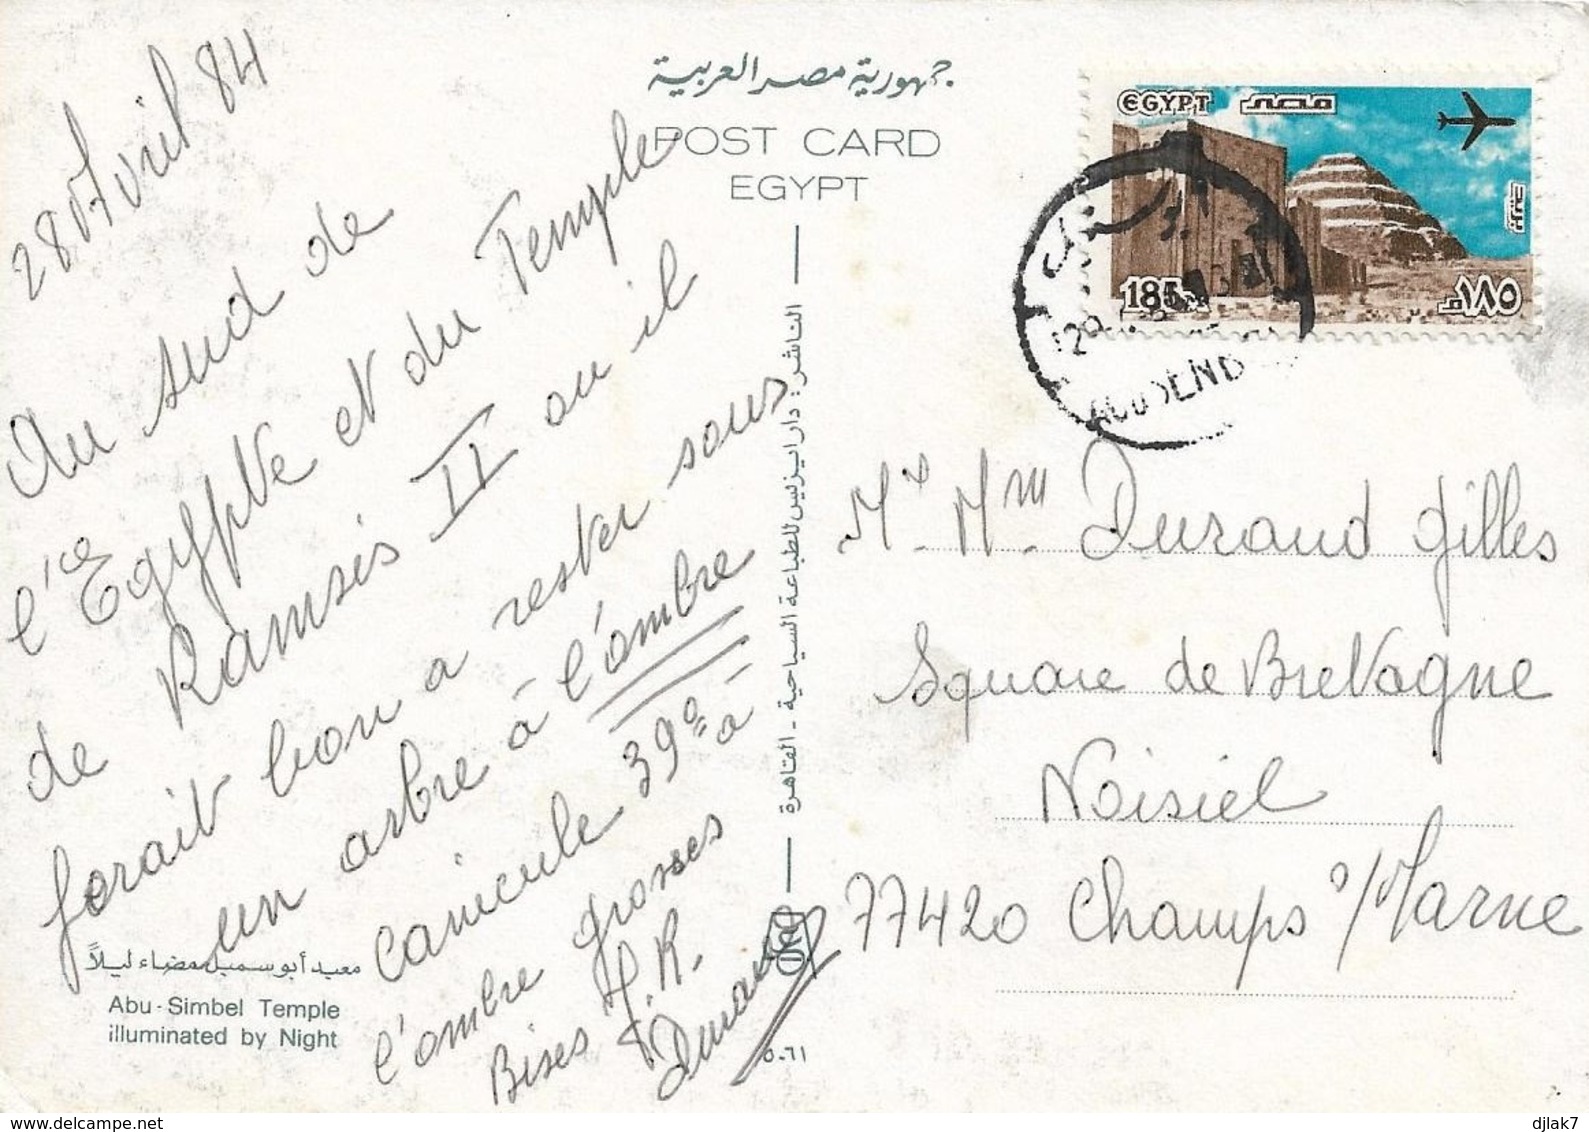 28 Avril 84
Au sud de
l'Egypte et du Temple
de Ramsis II ou il
ferait bon a rester sous
un arbre à l'ombre
canicule 39° à
l'ombre grosses
Bises
Durand
معبد أبو سمبل مضاء ليلاً
Abu-Simbel Temple
illuminated by Night
جمهورية مصر العربية
POST CARD
EGYPT
الناشر : دار ايزيس للطباعة السياحية - القاهرة
٥٠٦١
EGYPT مصر
بريد
185 ١٨٥م
أبوسمبل
29
Mr Mme Durand Gilles
Square de Bretagne
Noisiel
77420 Champs s/Marne
delcampe.net
djlak7